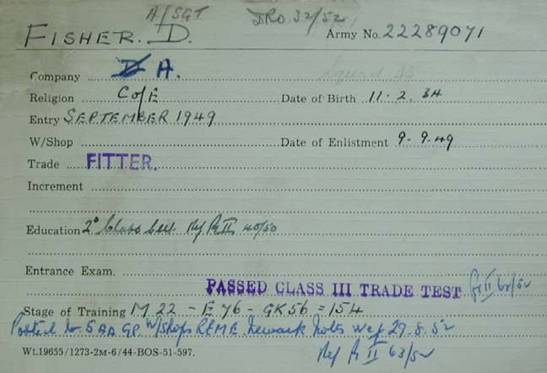 A/SGT JRO 32/52
FISHER. D. Army No. 22289071
Company D A.
Religion C of E Date of Birth 11.2.34
Entry SEPTEMBER 1949
W/Shop Date of Enlistment 9-9-49
Trade FITTER.
Increment
Education 2° Class Cert. Ref Pt II 40/50
Entrance Exam.
PASSED CLASS III TRADE TEST Pt II 63/52
Stage of Training M22 - E46 - GK56 = 154
Posted to 5 AA GP W/Shops REME Newark Notts wef 29.8.52
Ref Pt II 63/52
Wt.19655/1273-2M-6/44-BOS-51-597.